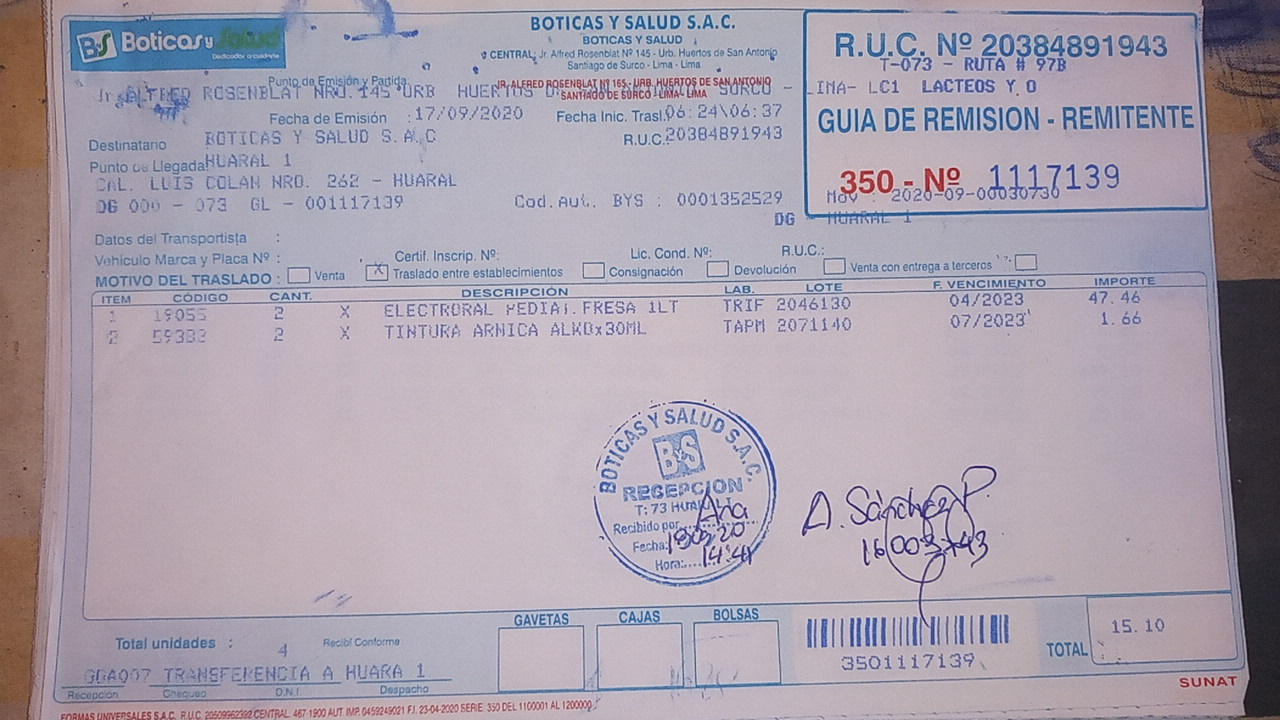 B&S Boticas y Salud
Dedicados a cuidarte
BOTICAS Y SALUD S.A.C.
BOTICAS Y SALUD
CENTRAL: Jr. Alfred Rosenblat Nº 145 - Urb. Huertos de San Antonio
Santiago de Surco - Lima - Lima
JR. ALFRED ROSENBLAT Nº 165 - URB. HUERTOS DE SAN ANTONIO
SANTIAGO DE SURCO - LIMA - LIMA
R.U.C. Nº 20384891943
T-073 - RUTA # 97B
Punto de Emisión y Partida:
Jr. ALFRED ROSENBLAT NRO. 145 URB HUERTOS SURCO - LIMA- LC1 LACTEOS Y O
Fecha de Emisión : 17/09/2020 Fecha Inic. Trasl. 06:24\06:37
GUIA DE REMISION - REMITENTE
Destinatario BOTICAS Y SALUD S.A.C R.U.C. 20384891943
Punto de Llegada: HUARAL 1
CAL. LUIS COLAN NRO. 262 - HUARAL
350 - Nº 1117139
DG 000 - 073 GL - 001117139 Cod.Aut. BYS : 0001352529
Mov : 2020-09-00030730
DG - HUARAL 1
Datos del Transportista :
Vehículo Marca y Placa Nº : Certif. Inscrip. Nº: Lic. Cond. Nº: R.U.C.:
MOTIVO DEL TRASLADO : Venta X Traslado entre establecimientos Consignación Devolución Venta con entrega a terceros
ITEM CÓDIGO CANT. DESCRIPCIÓN LAB. LOTE F. VENCIMIENTO IMPORTE
1 19055 2 X ELECTRORAL PEDIAT.FRESA 1LT TRIF 2046130 04/2023 47.46
2 59382 2 X TINTURA ARNICA ALKOx30ML TAPM 2071140 07/2023 1.66
BOTICAS Y SALUD S.A.C.
B&S
RECEPCION
T: 73 HUARAL I
Recibido por: Ana
Fecha:
Hora: 14:41
A. Sánchez P.
16003743
GAVETAS CAJAS BOLSAS
Total unidades : 4 Recibí Conforme
3501117139
TOTAL 15.10
TRANSFERENCIA A HUARA 1
Recepción Chequeo D.N.I. Despacho
SUNAT
FORMAS UNIVERSALES S.A.C. R.U.C. 20509962392 CENTRAL: 467-1900 AUT. IMP. 0459249021 F.I. 23-04-2020 SERIE: 350 DEL 1100001 AL 1200000